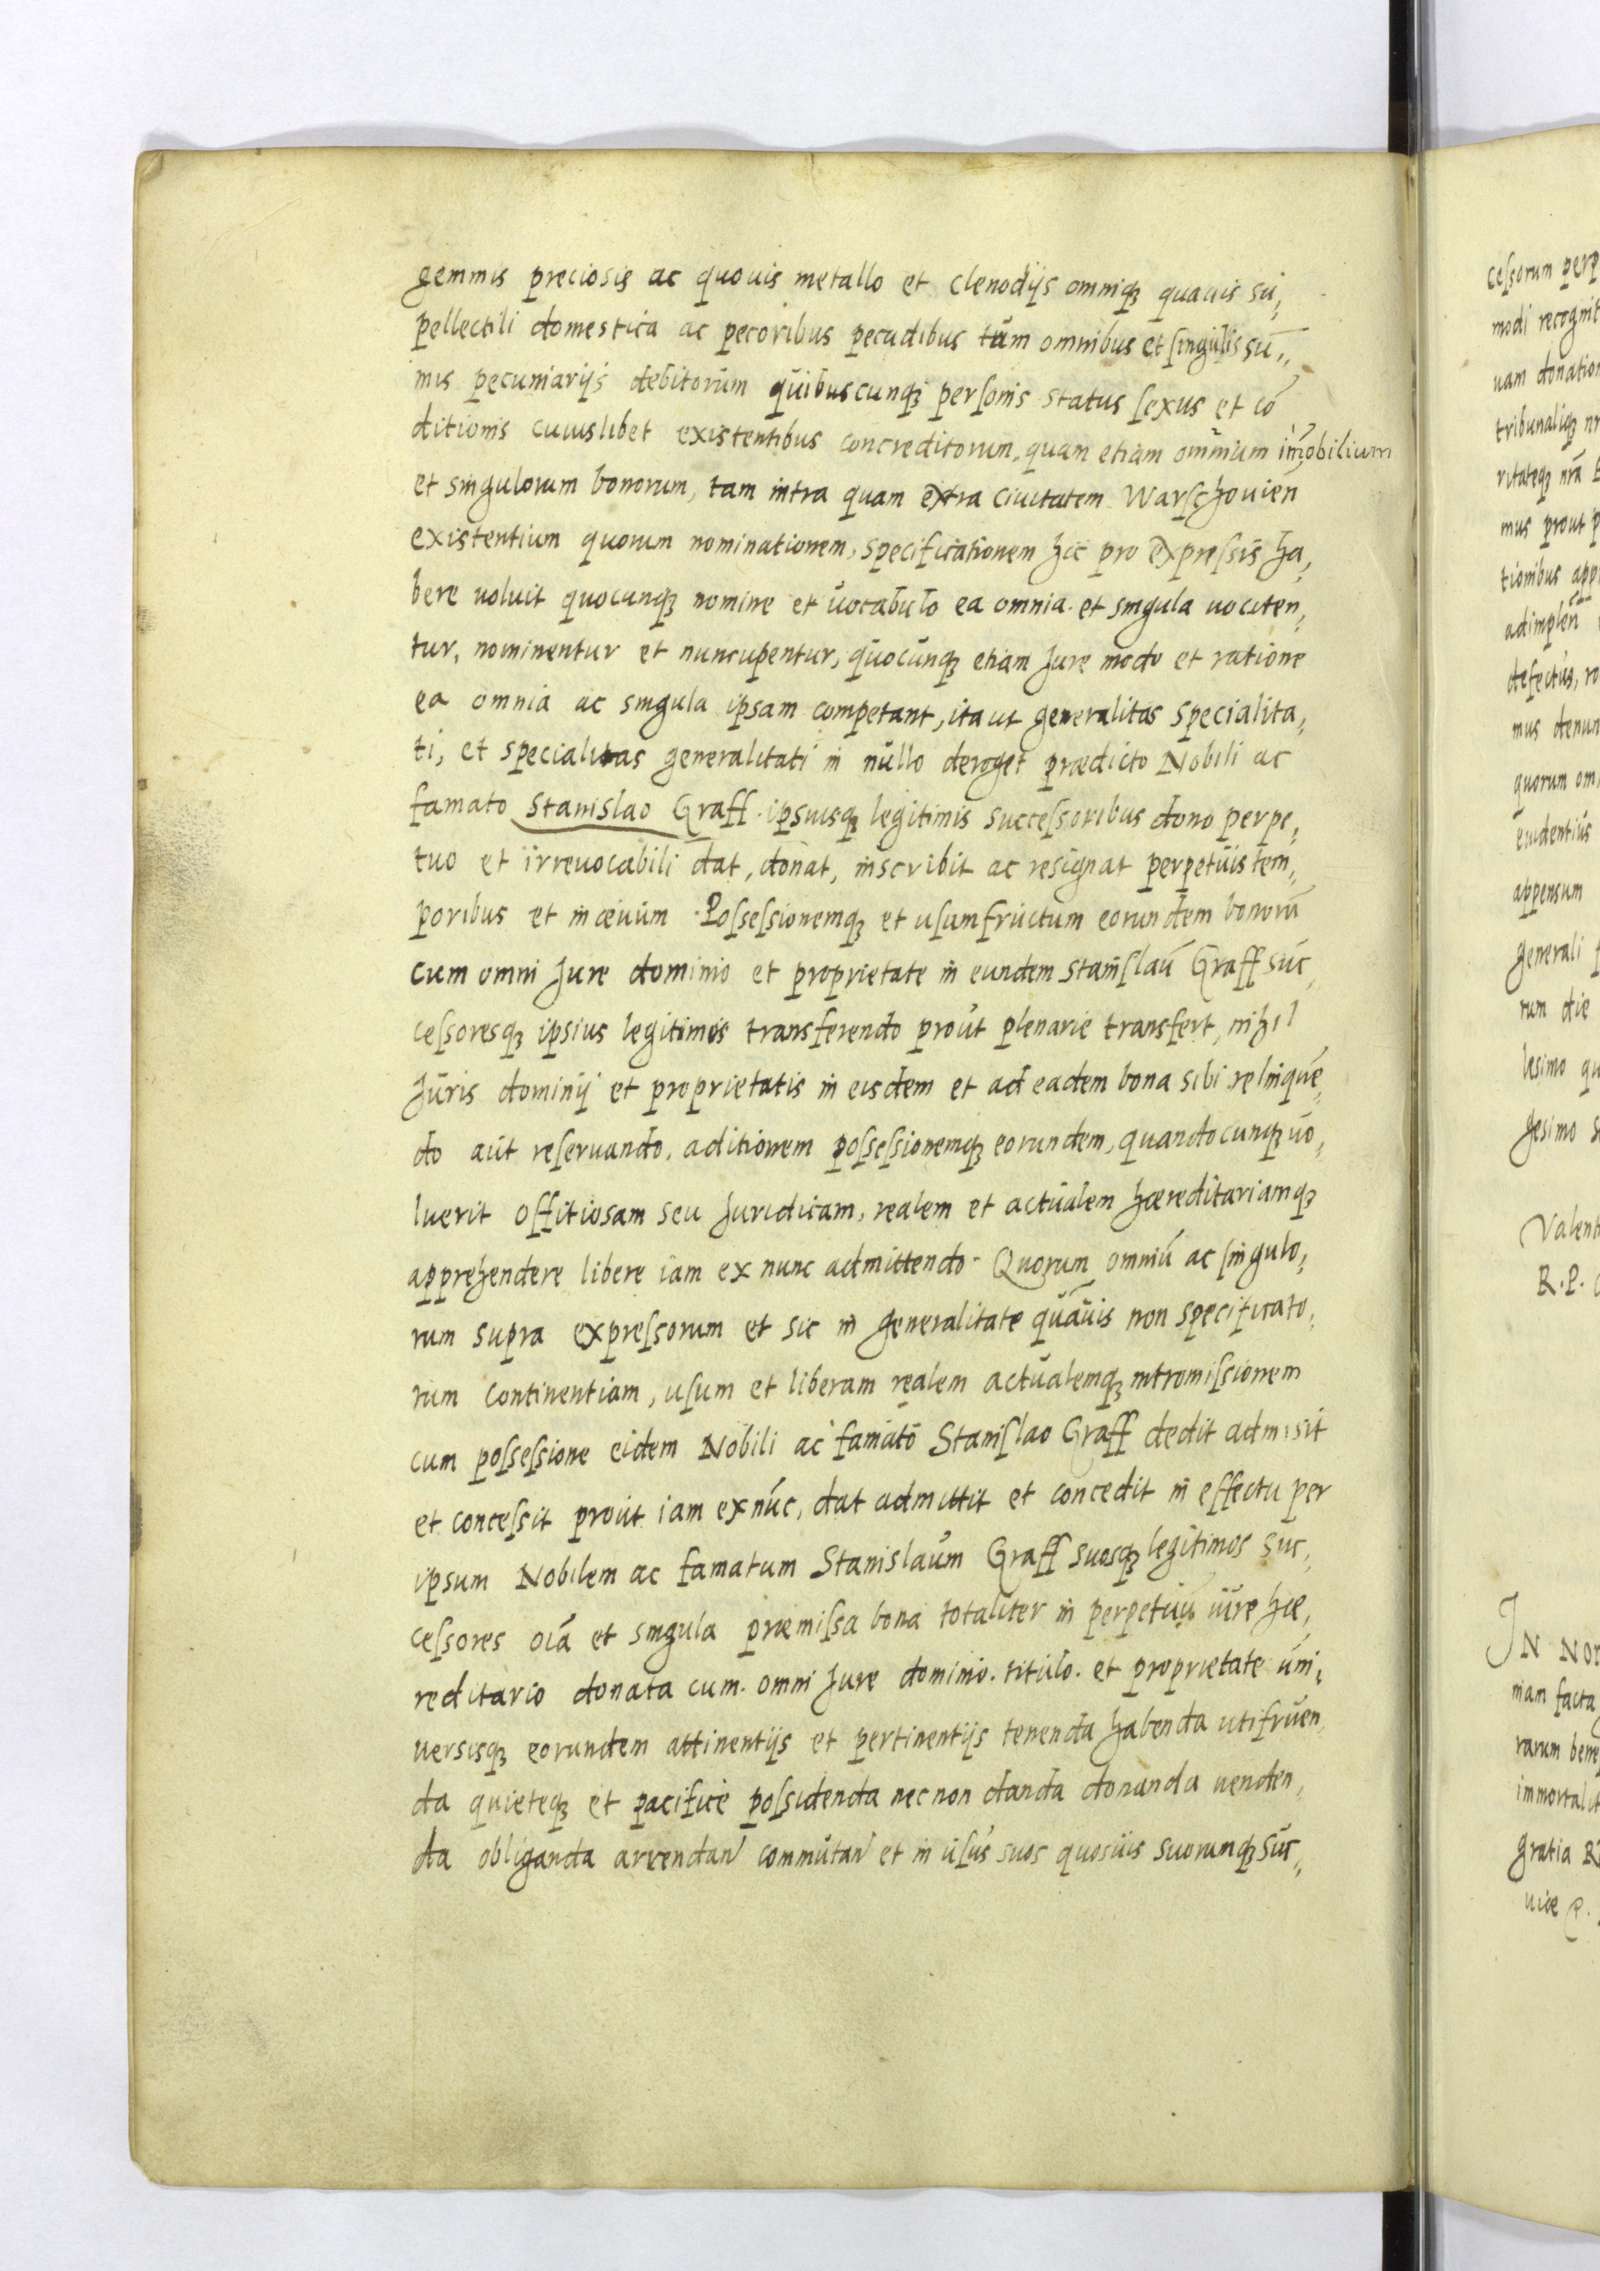 gemmis preciosis ac quouis metallo et clenodijs omniqꝫ quauis su,
pellectili domestica ac pecoribus pecudibus tum omnibus et ſingulis su,,
mis pecuniarijs debitorum quibuscunqꝫ perſonis status ſexus et cō
ditionis cuiuslibet existentibus concreditorum, quam etiam omnium im̄obilium
et singulorum bonorum, tam intra quam extra ciuitatem Warſchouien̄
existentium quorum nominationem, specificationem hic pro expreſsis ha,
bere uoluit quocunqꝫ nomine et uocabulo ea omnia et singula uociten,
tur, nominentur et nuncupentur, quocunqꝫ etiam Jure modo et ratione
ea omnia ac singula ipsam competant, ita ut generalitas specialita,
ti, et specialitas generalitati in nullo deroget prædicto Nobili ac
famato Stanislao Graff ipsuisqꝫ legitimis succeſsoribus dono perpe,
tuo et irreuocabili dat, donat, inscribit ac resignat perpetuis tem,
poribus et in æuum. Poſseſsionemqꝫ et uſumfructum eorundem bonorū
cum omni Jure dominio et proprietate in eundem Staniſlaū Graff suc,
ceſsoresqꝫ ipsius legitimos transferendo prout plenarie transfert, nihil
Juris dominij et proprietatis in eisdem et ad eadem bona sibi relinquē,
do aut reſeruando, aditionem poſseſsionemqꝫ eorundem, quandocunqꝫ uo,
luerit offitiosam seu Juridicam, realem et actualem hæreditariamqꝫ
apprehendere libere iam ex nunc admittendo. Quorum omniū ac ſingulo,
rum supra expreſsorum et sic in generalitate quāuis non specificato,
rum continentiam, uſum et liberam realem actualemqꝫ intromiſsionem
cum poſseſsione eidem Nobili ac famato Staniſlao Graff dedit admisit
et conceſsit prout iam ex nūc, dat admittit et concedit in effectu per
ipsum Nobilem ac famatum Stanislaum Graff suosqꝫ legitimos suc,
ceſsores oīa et singula præmiſsa bona totaliter in perpetuū iure hæ,
reditario donata cum omni Jure dominio. titulo. et proprietate uni,
uersisqꝫ eorundem attinentijs et pertinentijs tenenda habenda utifruen,
da quieteqꝫ et pacifice poſsidenda nec non danda donanda uenden,
da obliganda arrendan̄ commutan̄ et in uſus suos quosuis suorunqꝫ suc,
ceſsorum perp
modi recognit
uam donation
tribunaliqꝫ nr
ritateqꝫ nrā
mus prout p
tionibus app
adimplen̄
defectus, ro
mus denun
quorum om
euidentius
appensum
generali
rum die
lesimo qu
gesimo
Valent
R. P.
IN NO
niam facta
rarum bene
immortalit
gratia R
niæ